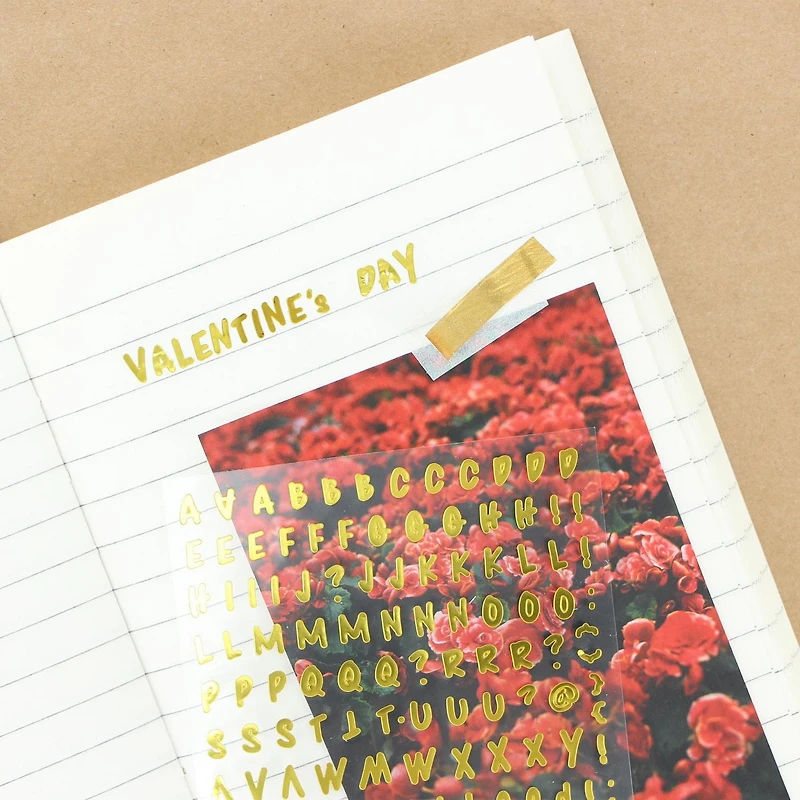 VALENTINE's DAY
A A A B B B C C C D D D
E E E F F F G G G H H ! !
H I I I J ? J J K K K L L !
L L M M M N N N N O O O :
P P P Q Q Q ? R R R ?
S S S T T T . U U U ? @
A V A W M W X X X Y !